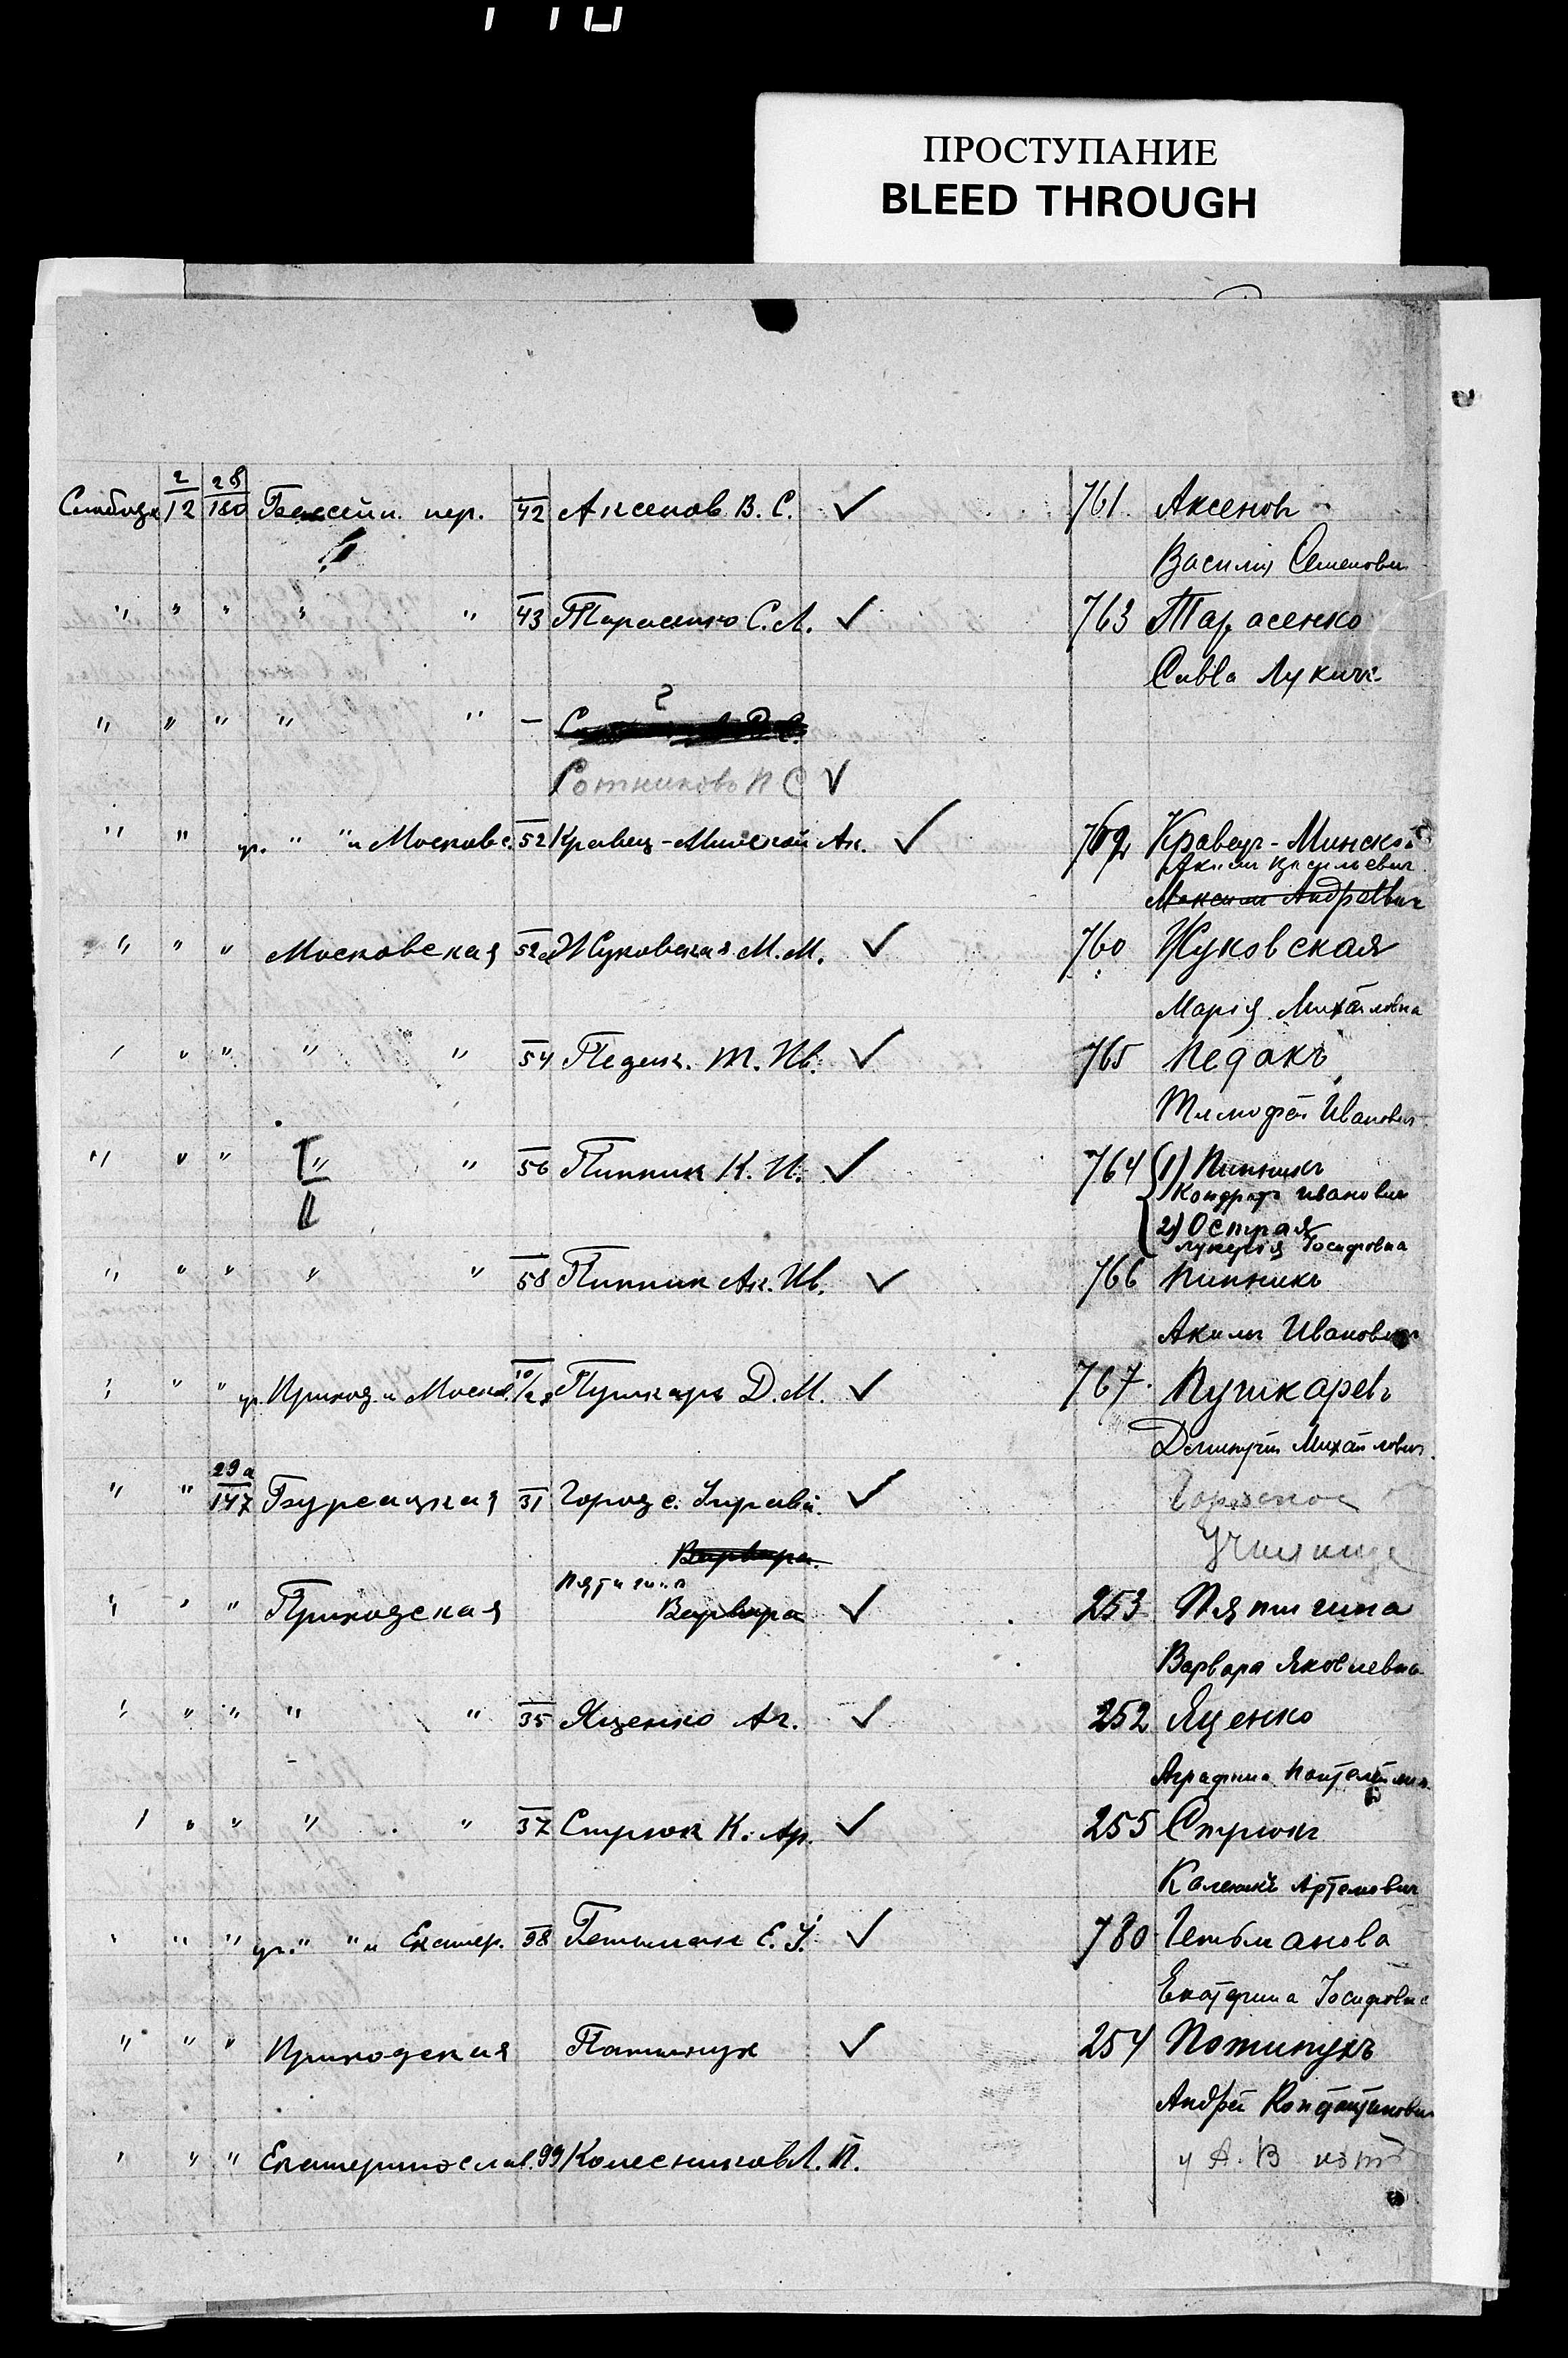 ПРОСТУПАНИЕ
BLEED THROUGH
2 28
Слободк 12 180 Бассейн. пер. 42 Аксенов В. С. ✓ 761. Аксеновъ
Василій Семенович
" " " " " 43 Тарасенко С. Л. ✓ 763 Тарасенко
Савва Лукичъ
?
" " " " " —
Сотниковъ П С ✓
" " уг. " " и Московс. 52 Кравец-Минской Ак. ✓ 762 Кравец-Минской
Аким Васильевич
Максим Андреевич
" " " Московская 52а Жуковская М. М. ✓ 760 Жуковская
Марія Михайловна
" " " " " 54 Педак. Т. Ив. ✓ 765 Педакъ
Тимофей Иванович
" " " I " " 56 Пинник К. И. ✓ 764 1) Пинникъ
Кондрат Иванович
II
2) Острая
Лукерія Іосифовна
" " " " " 58 Пинник Ак. Ив. ✓ 766 Пинникъ
Акимъ Иванович
" " " уг. Приход. и Моск. 10/28 Пушкарь Д. М. ✓ 767. Пушкаревъ
Димитрій Михайлович.
29а
" " 147 Бурсацкая 31 Городс. Управа. ✓ Городское
Училище
Варвара.
Пятигина
" " " Приходская Варвара ✓ 253 Пятигина
Варвара Яковлевна
" " " " " 35 Яценко Аг. ✓ 252 Яценко
Аграфина
" " " " " 37 Стрюк К. Ар. ✓ 255 Стрюкъ
Каленикъ Артемович
" " " уг. " " и Екатер. 98 Гетьман Е. І. ✓ 780 Гетьманова
Екатерина Іосифовна
" " " Приходская Потипук ✓ 254 Потипукъ
Андрей Константинович
" " " Екатеринослав. 99 Колесников Л. П.